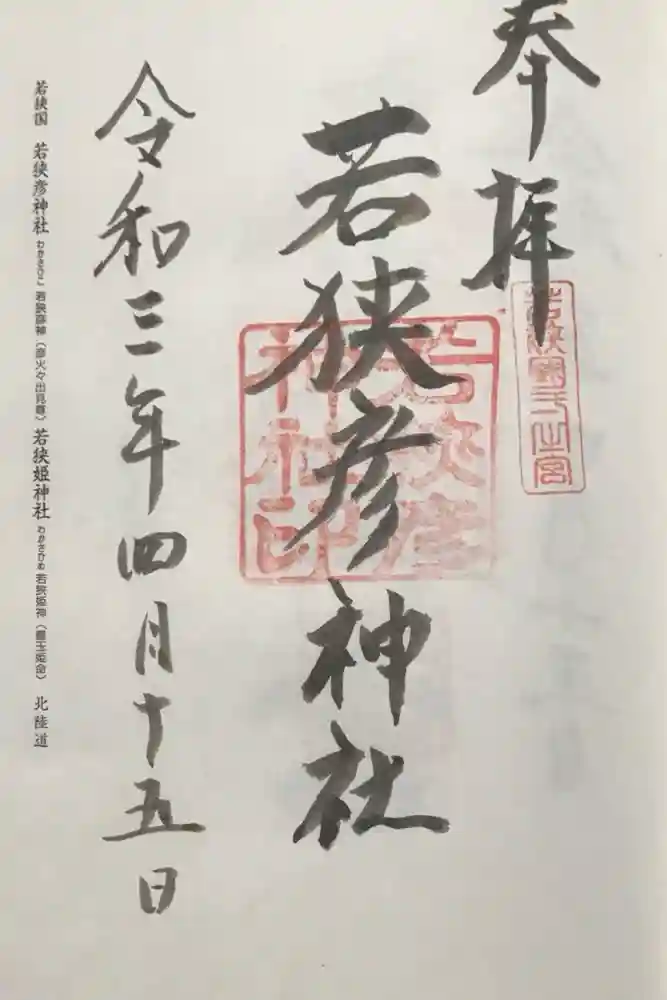 奉拝
若狭國一之宮
若狭彦神社
若狭彦神社印
令和三年四月十五日
若狭国 若狭彦神社 わかさひこ 若狭彦神（彦火々出見尊） 若狭姫神社 わかさひめ 若狭姫神（豊玉姫命） 北陸道